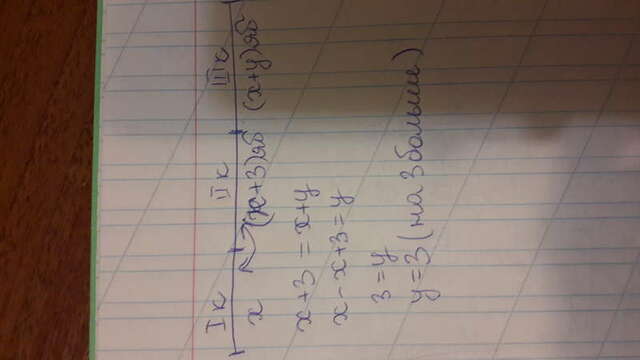 I к II к III к
x (x+3)яб (x+y)яб
x+3 = x+y
x-x+3=y
3=y
y=3 (на 3 больше)